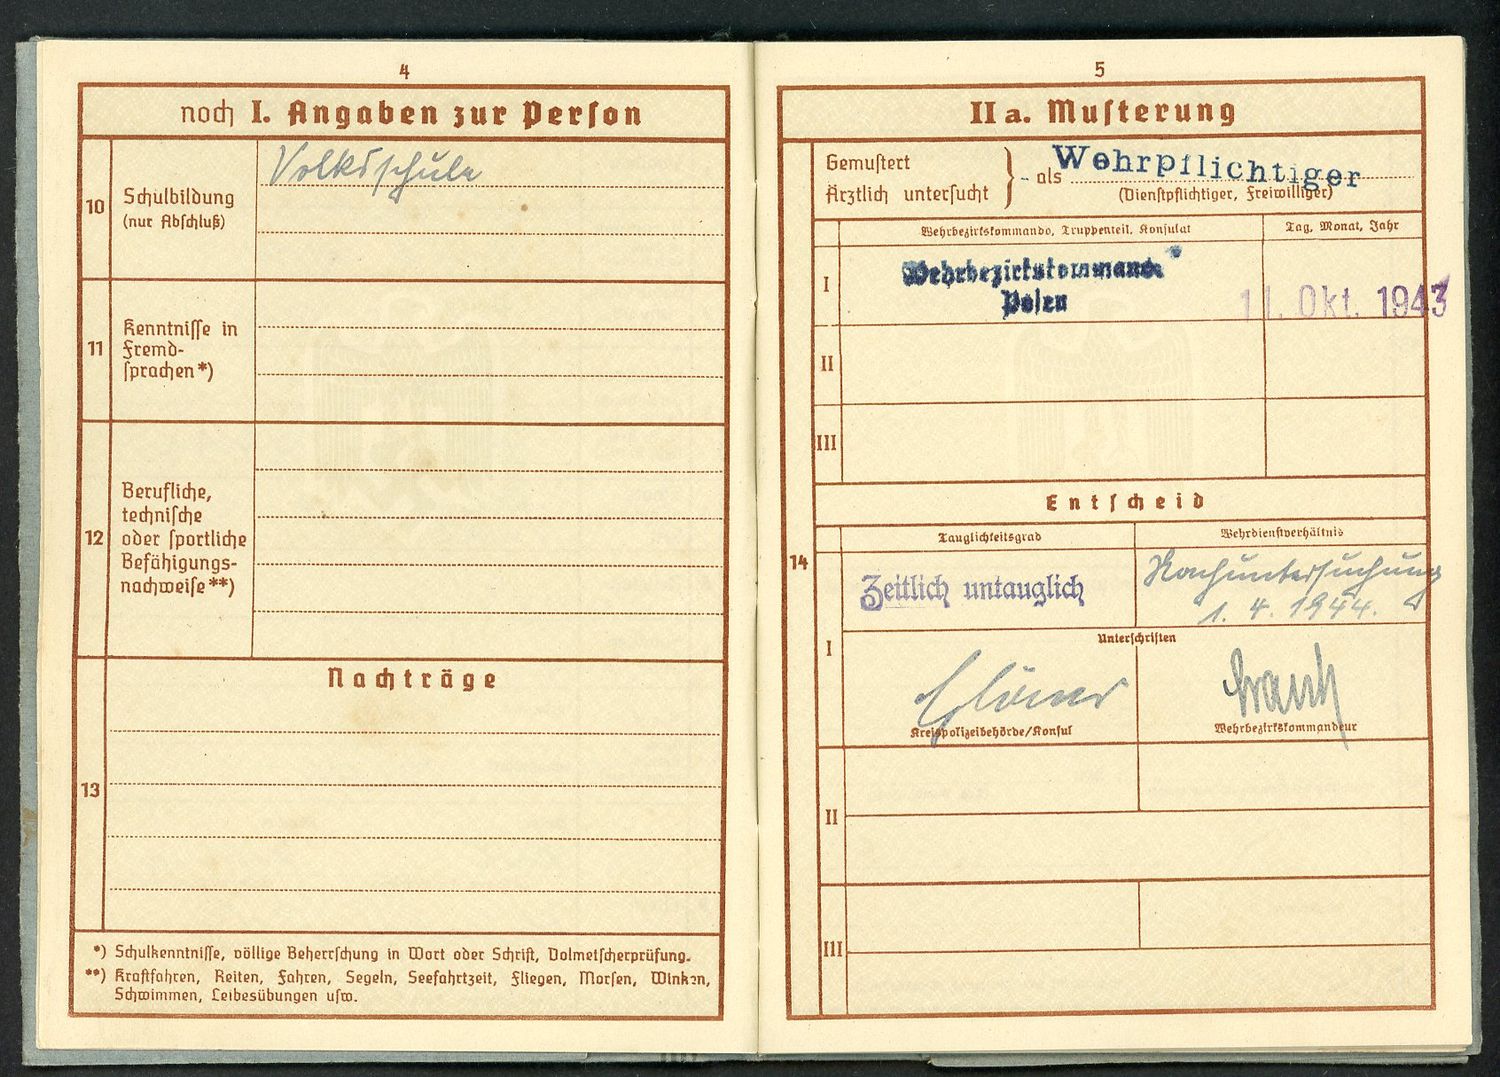 4
noch I. Angaben zur Perſon
10
Schulbildung
(nur Abſchluß)
Volksschule
11
Kenntniſſe in
Fremd-
ſprachen*)
12
Berufliche,
techniſche
oder ſportliche
Befähigungs-
nachweiſe**)
Nachträge
13
*) Schulkenntniſſe, völlige Beherrſchung in Wort oder Schrift, Dolmetſcherprüfung.
**) Kraftfahren, Reiten, Fahren, Segeln, Seefahrtzeit, Fliegen, Morſen, Winken,
Schwimmen, Leibesübungen uſw.
5
II a. Muſterung
Gemuſtert
Ärztlich unterſucht
als Wehrpflichtiger
(Dienſtpflichtiger, Freiwilliger)
Wehrbezirkskommando, Truppenteil, Konſulat
Tag, Monat, Jahr
I
Wehrbezirkskommando
Poſen
11. Okt. 1943
II
III
14
Entſcheid
Tauglichkeitsgrad
Wehrdienſtverhältnis
I
Zeitlich untauglich
Nachuntersuchung
1. 4. 1944.
Unterſchriften
Kreispolizeibehörde/Konſul
Wehrbezirkskommandeur
II
III